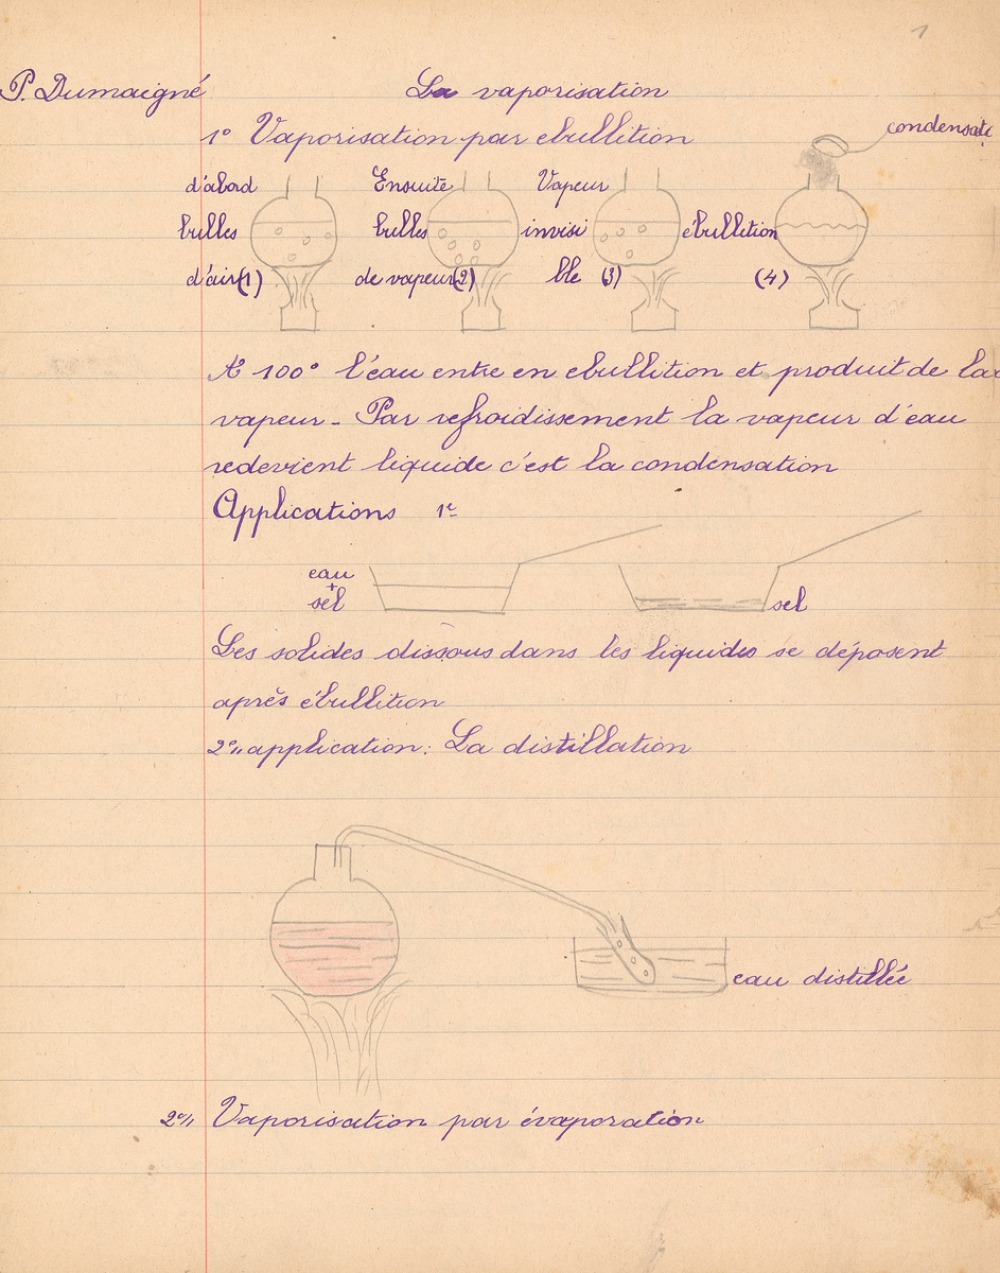 1
P. Dumaigné La vaporisation
1° Vaporisation par ebullition
condensat
d'abord Ensuite Vapeur
bulles bulles invisi ébullition
d'air (1) de vapeur (2) ble (3) (4)
A 100° l'eau entre en ebullition et produit de la
vapeur - Par refroidissement la vapeur d'eau
redevient liquide c'est la condensation
Applications 1e
eau
+
sel sel
Les solides dissous dans les liquides se déposent
après ébullition
2e,, application : La distillation
eau distillée
2e,, Vaporisation par évaporation